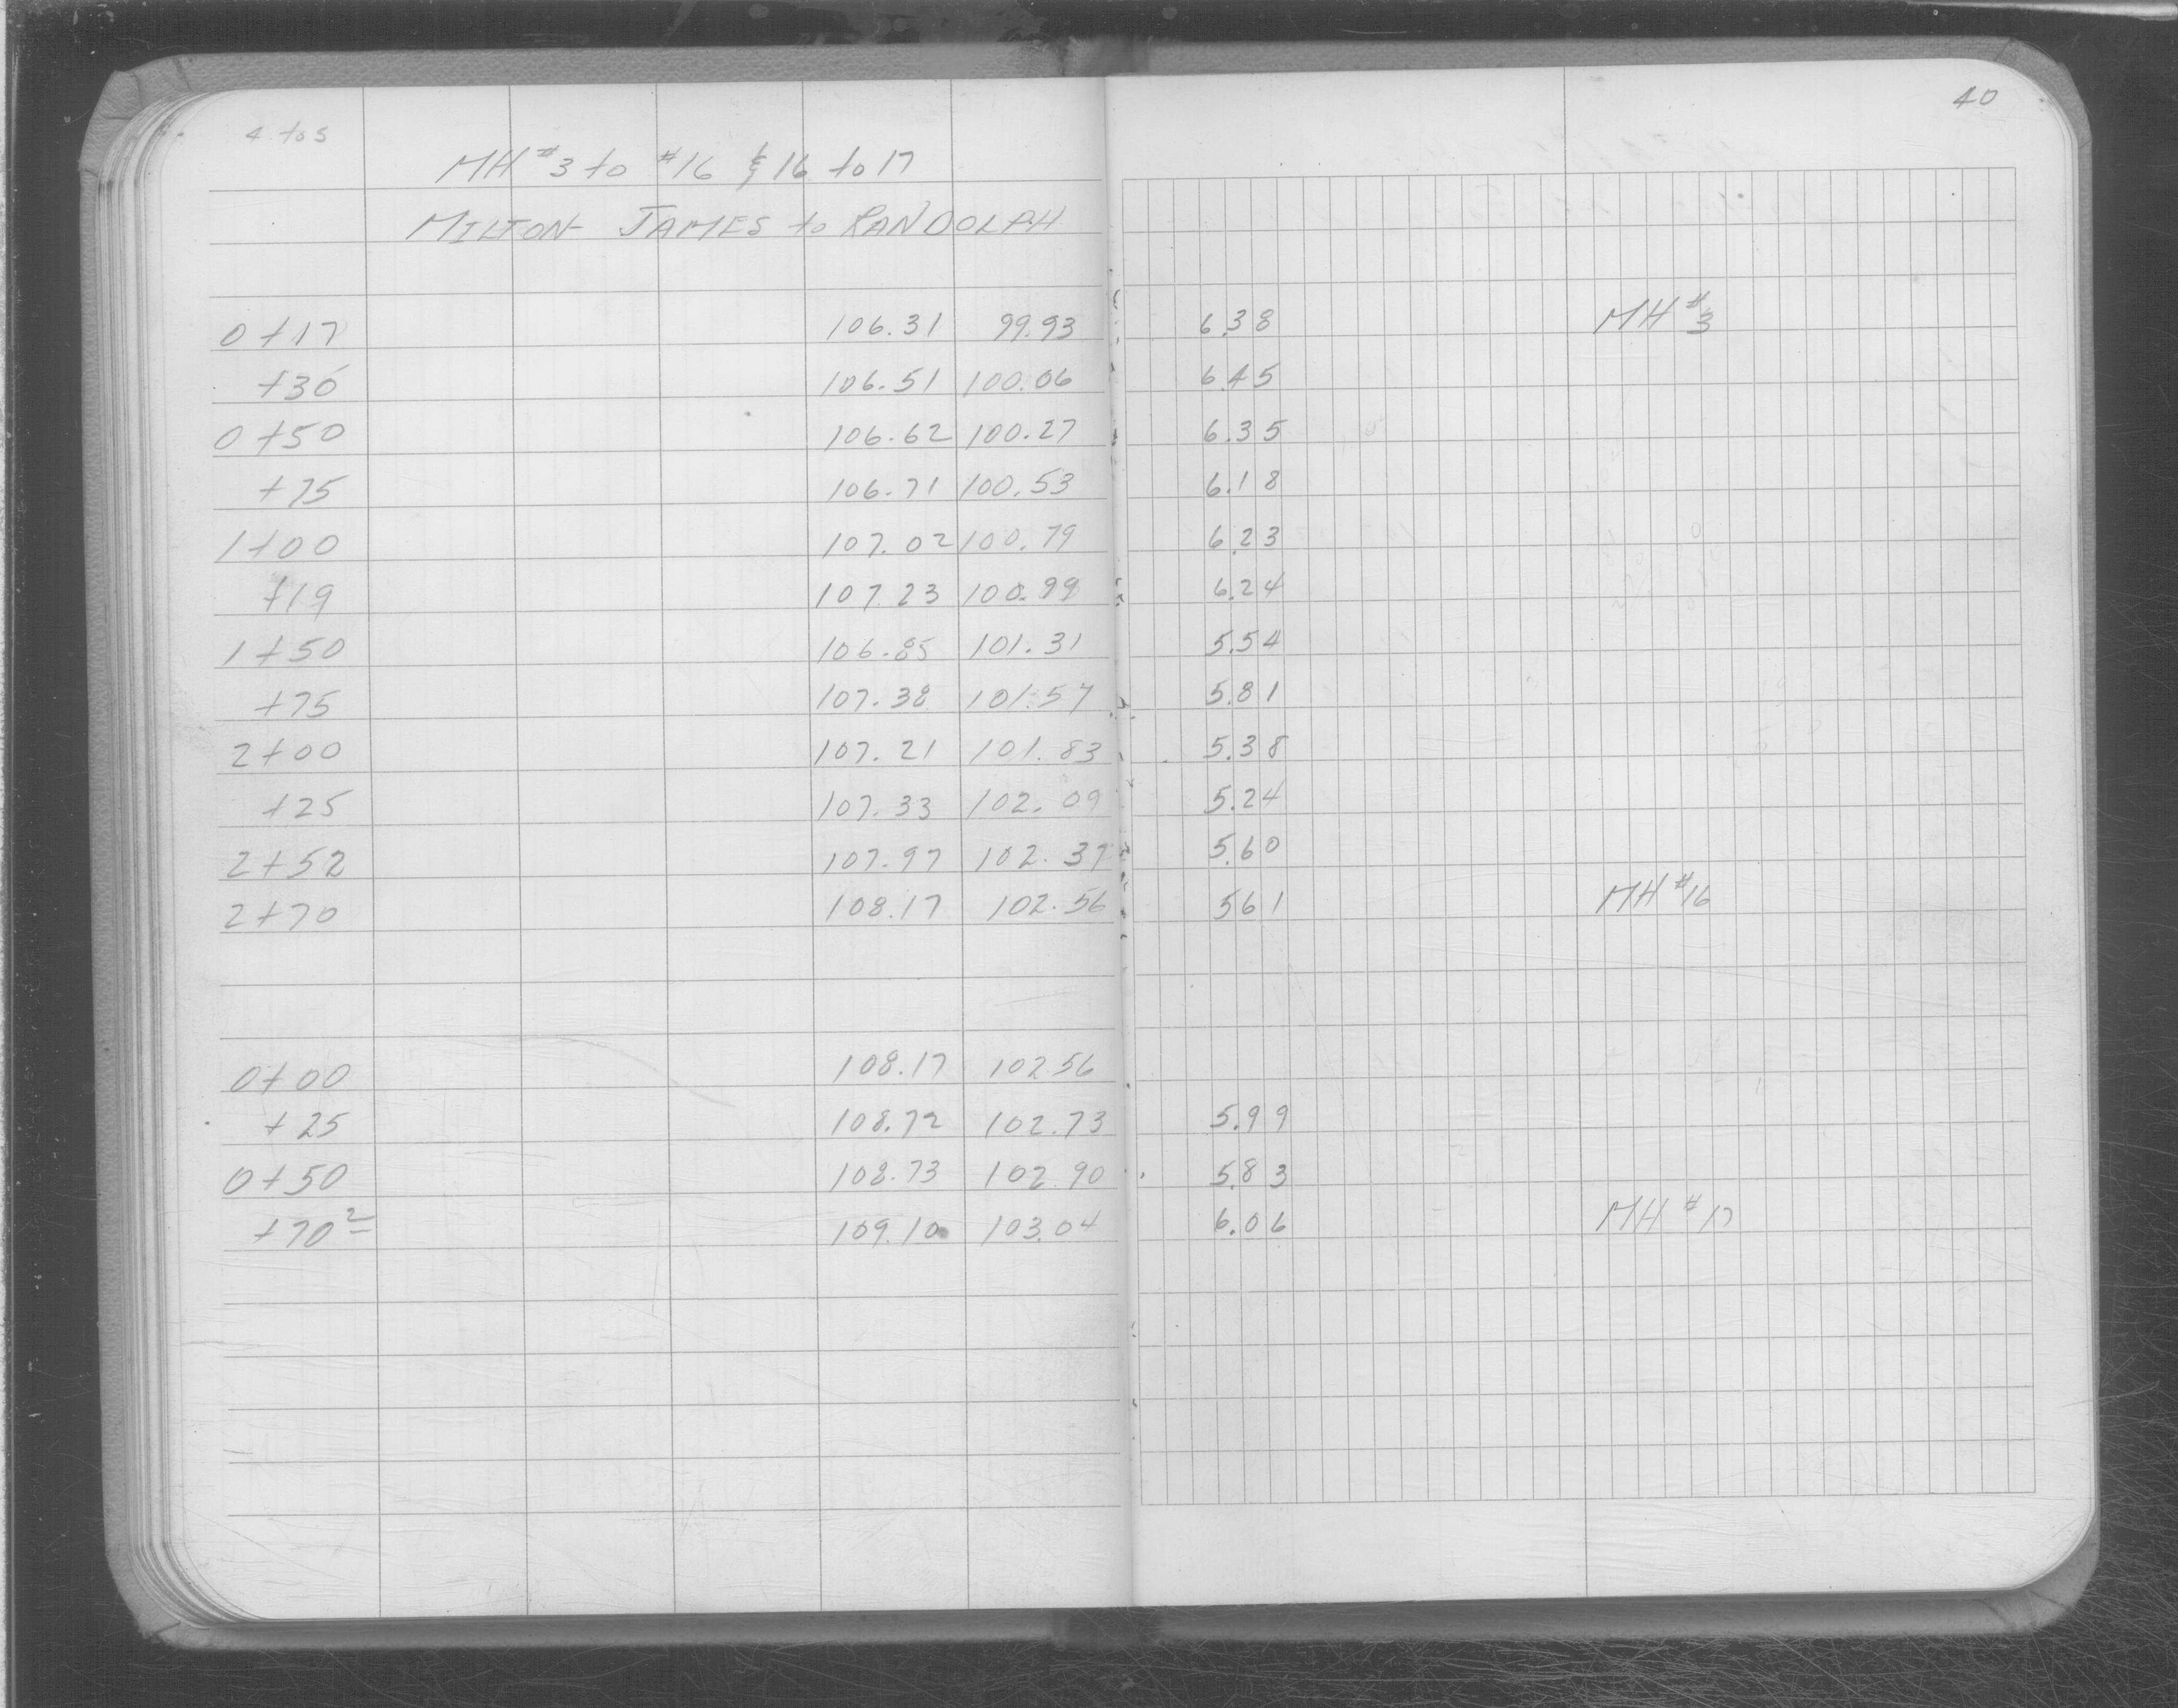 40
4 to 5
MH #3 to #16 & 16 to 17
MILTON - JAMES to RANDOLPH
0+17 106.31 99.93 6.38 MH #3
+30 106.51 100.06 6.45
0+50 106.62 100.27 6.35
+75 106.71 100.53 6.18
1+00 107.02 100.79 6.23
+19 107.23 100.99 6.24
1+50 106.85 101.31 5.54
+75 107.38 101.57 5.81
2+00 107.21 101.83 5.38
+25 107.33 102.09 5.24
2+52 107.97 102.37 5.60
2+70 108.17 102.56 561 MH #16
0+00 108.17 102.56
+25 108.72 102.73 5.99
0+50 108.73 102.90 5.83
+70² 109.10 103.04 6.06 MH #17